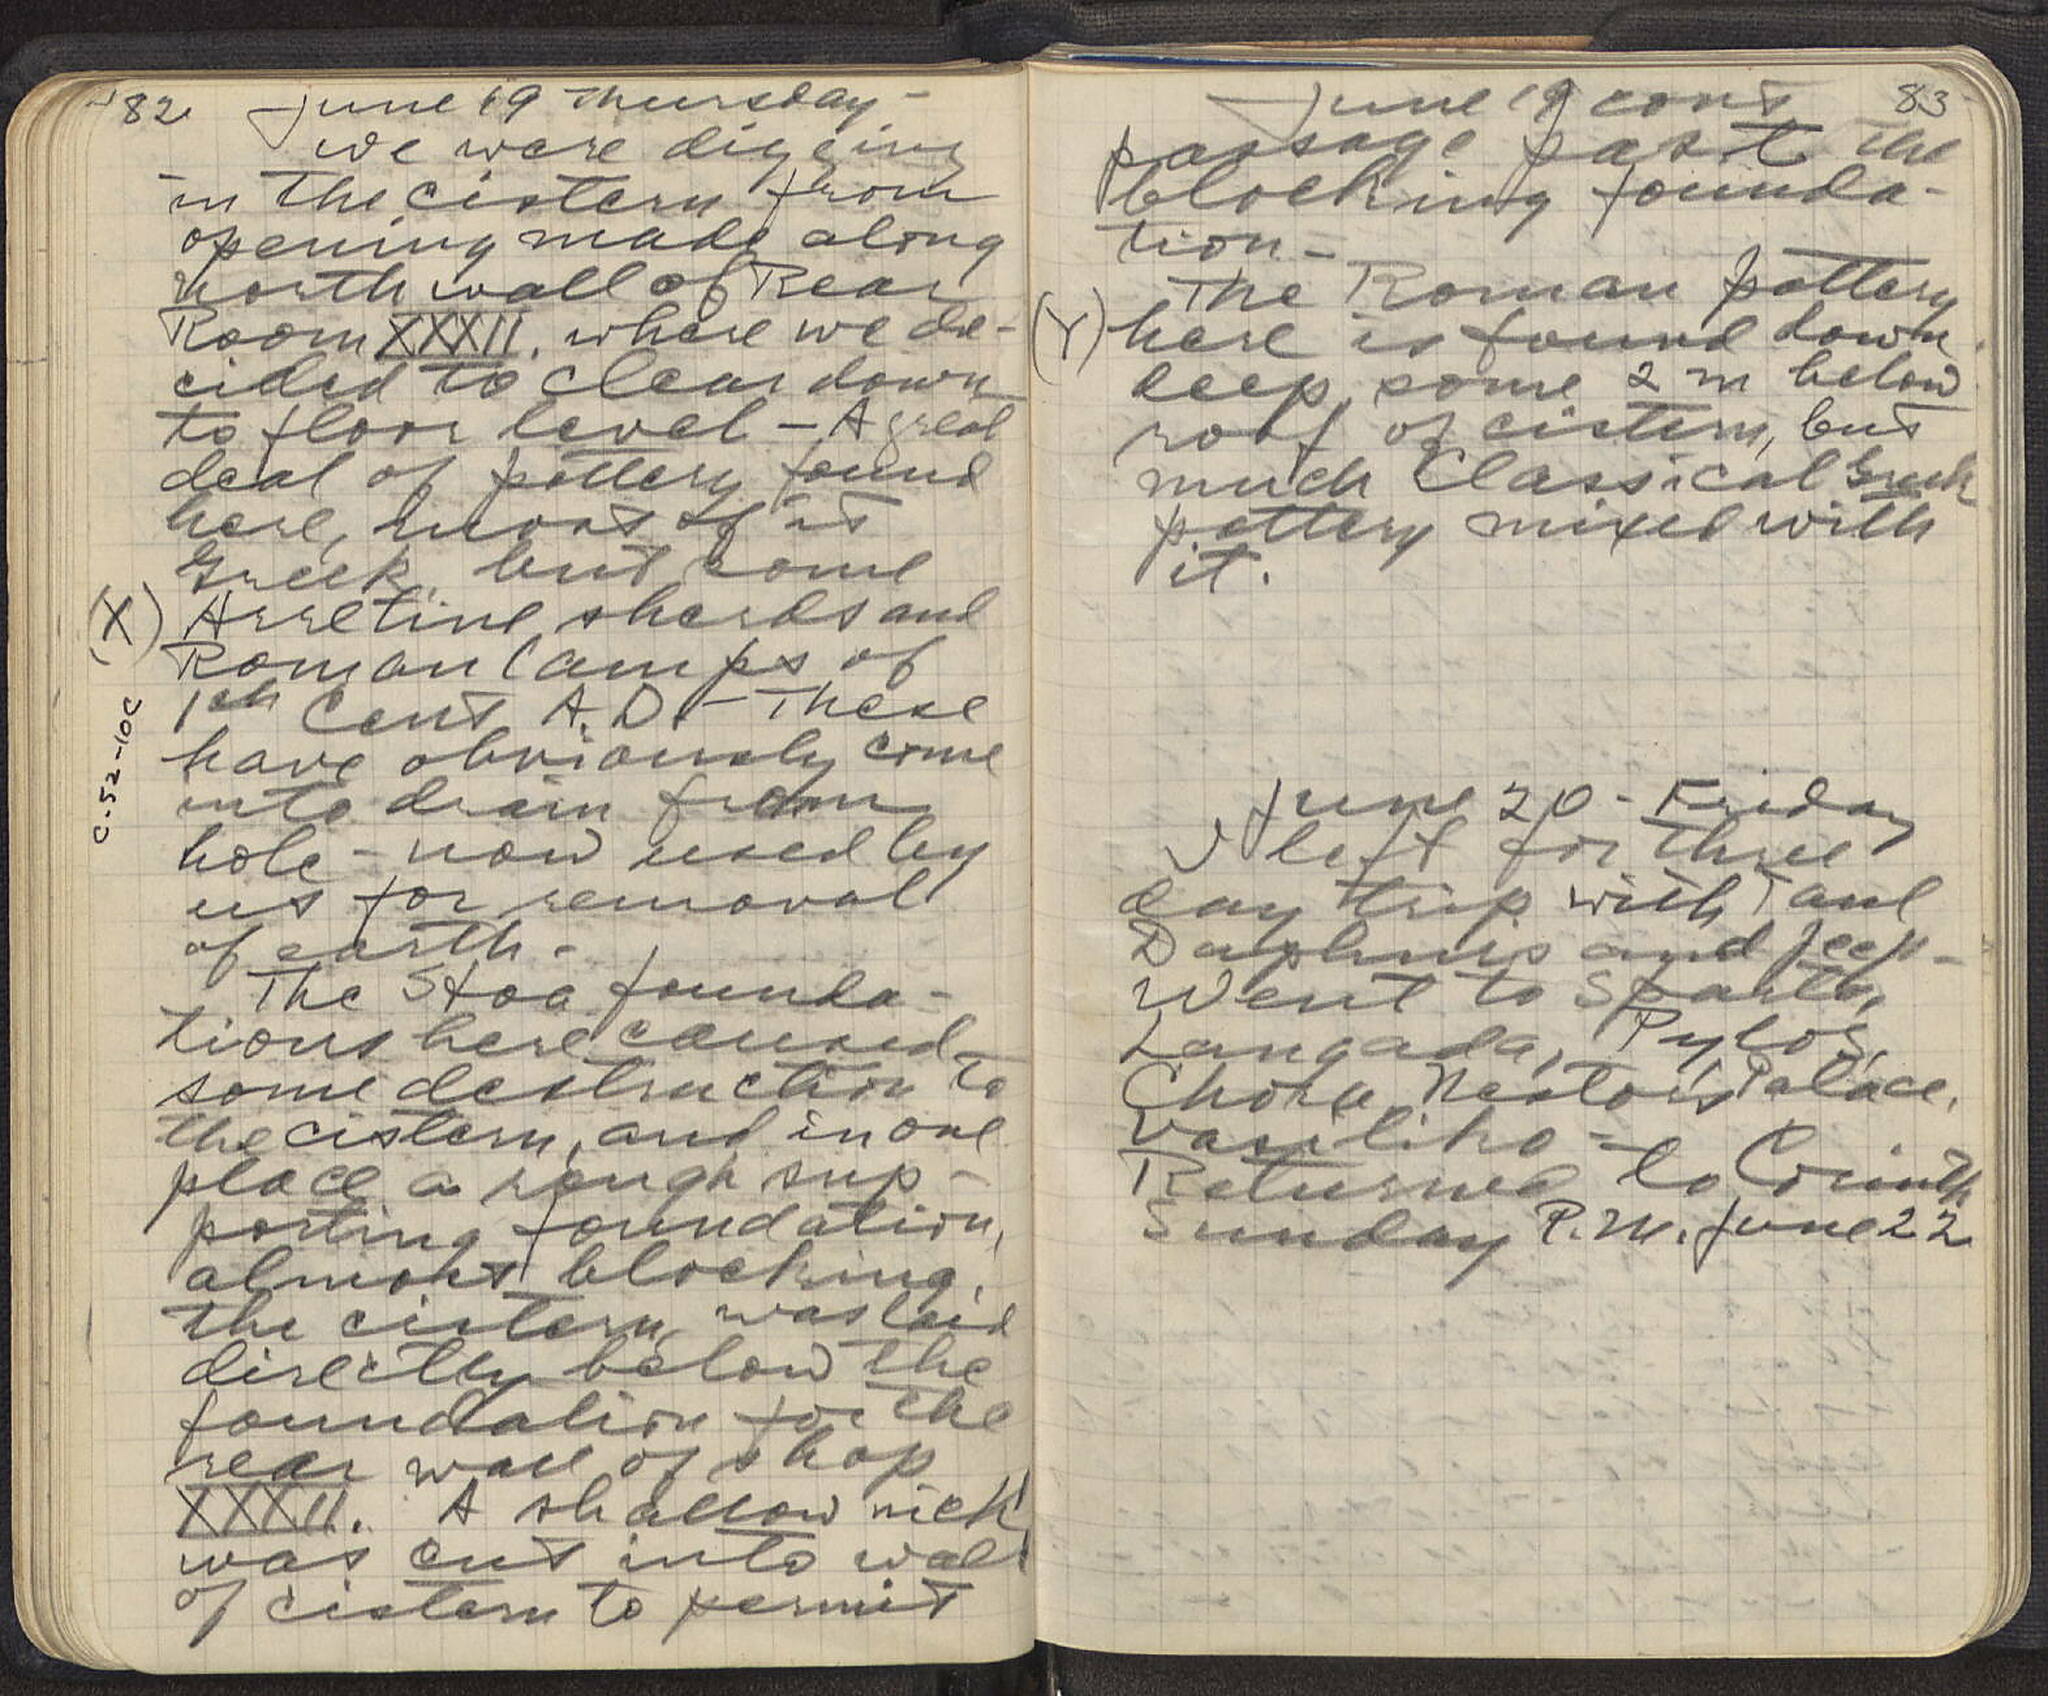 82
June 19 Thursday -
We were digging
in the cistern from
opening made along
north wall of Rear
Room XXXII, where we de-
cided to clear down
to floor level - A great
deal of pottery found
here, most of it
Greek, but some
(X) Arretine sherds and
Roman lamps of
1st Cent A.D. - These
have obviously come
into drain from
hole - now used by
us for removal
of earth -
C-52-10c
The Stoa founda-
tions here caused
some destruction to
the cistern, and in one
place a rough sup-
porting foundation,
almost blocking
the cistern, was laid
directly below the
foundation for the
rear wall of shop
XXXII. A shallow nick
was cut into wall
of cistern to permit
June 19 cont 83
passage past the
blocking founda-
tion -
The Roman pottery
(Y) here is found down
deep, some 2 m below
roof of cistern, but
much Classical Greek
pottery mixed with
it.
June 20 - Friday
I left for three
day trip with Paul
Daphnis and jeep -
Went to Sparta,
Langada, Pylos,
Chora, Nestor's Palace,
Vasiliko -
Returned to Corinth
Sunday P.M. June 22